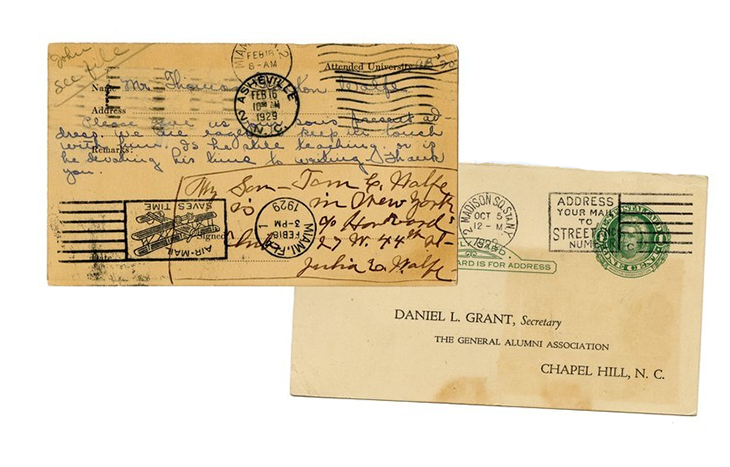 John
see file
Attended University AB '20
Name Mr. Thomas Wolfe
Address
Please give us your sons present ad-
dress. We are eager to keep in touch
with him. Is he still teaching or is
Remarks:
he devoting his time to writing? Thank
you.
MIAMI
FEB 18
8-AM
ASHEVILLE
FEB 16
1929
N.C.
My Son - Tom C. Wolfe
is in New York
c/o Harvard
Club 27 W. 44th St-
Julia E. Wolfe
Signed
Date
AIR-MAIL
SAVES TIME
MIAMI, FLA.
FEB 18
3-PM
1929
MADISON SQ. STA. N.Y.
OCT 5
12-M
ADDRESS
YOUR MAIL
TO
STREET
NUMBER
CARD IS FOR ADDRESS
DANIEL L. GRANT, Secretary
THE GENERAL ALUMNI ASSOCIATION
CHAPEL HILL, N. C.